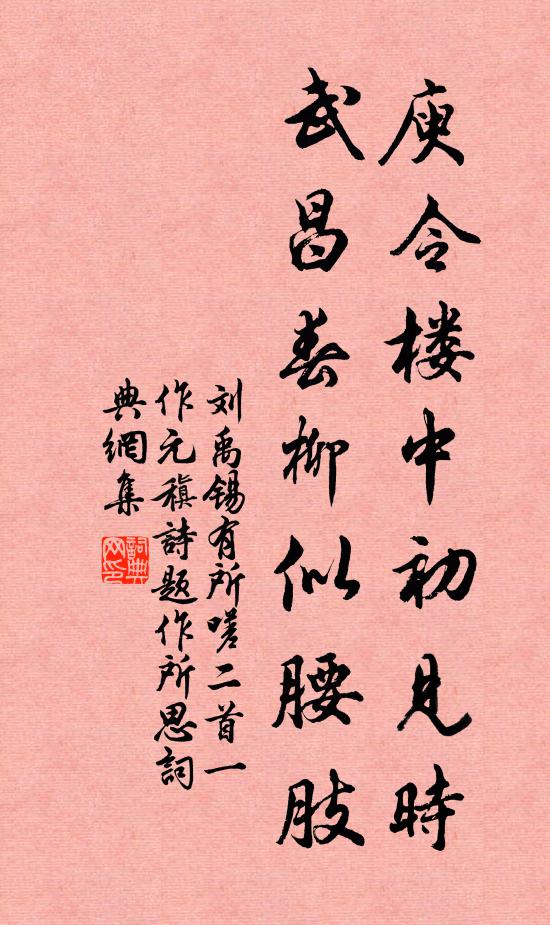 庾令楼中初見時
武昌春柳似腰肢
刘禹锡有所嗟二首一
作元稹詩题作所思詞
典網集
詞典
网印